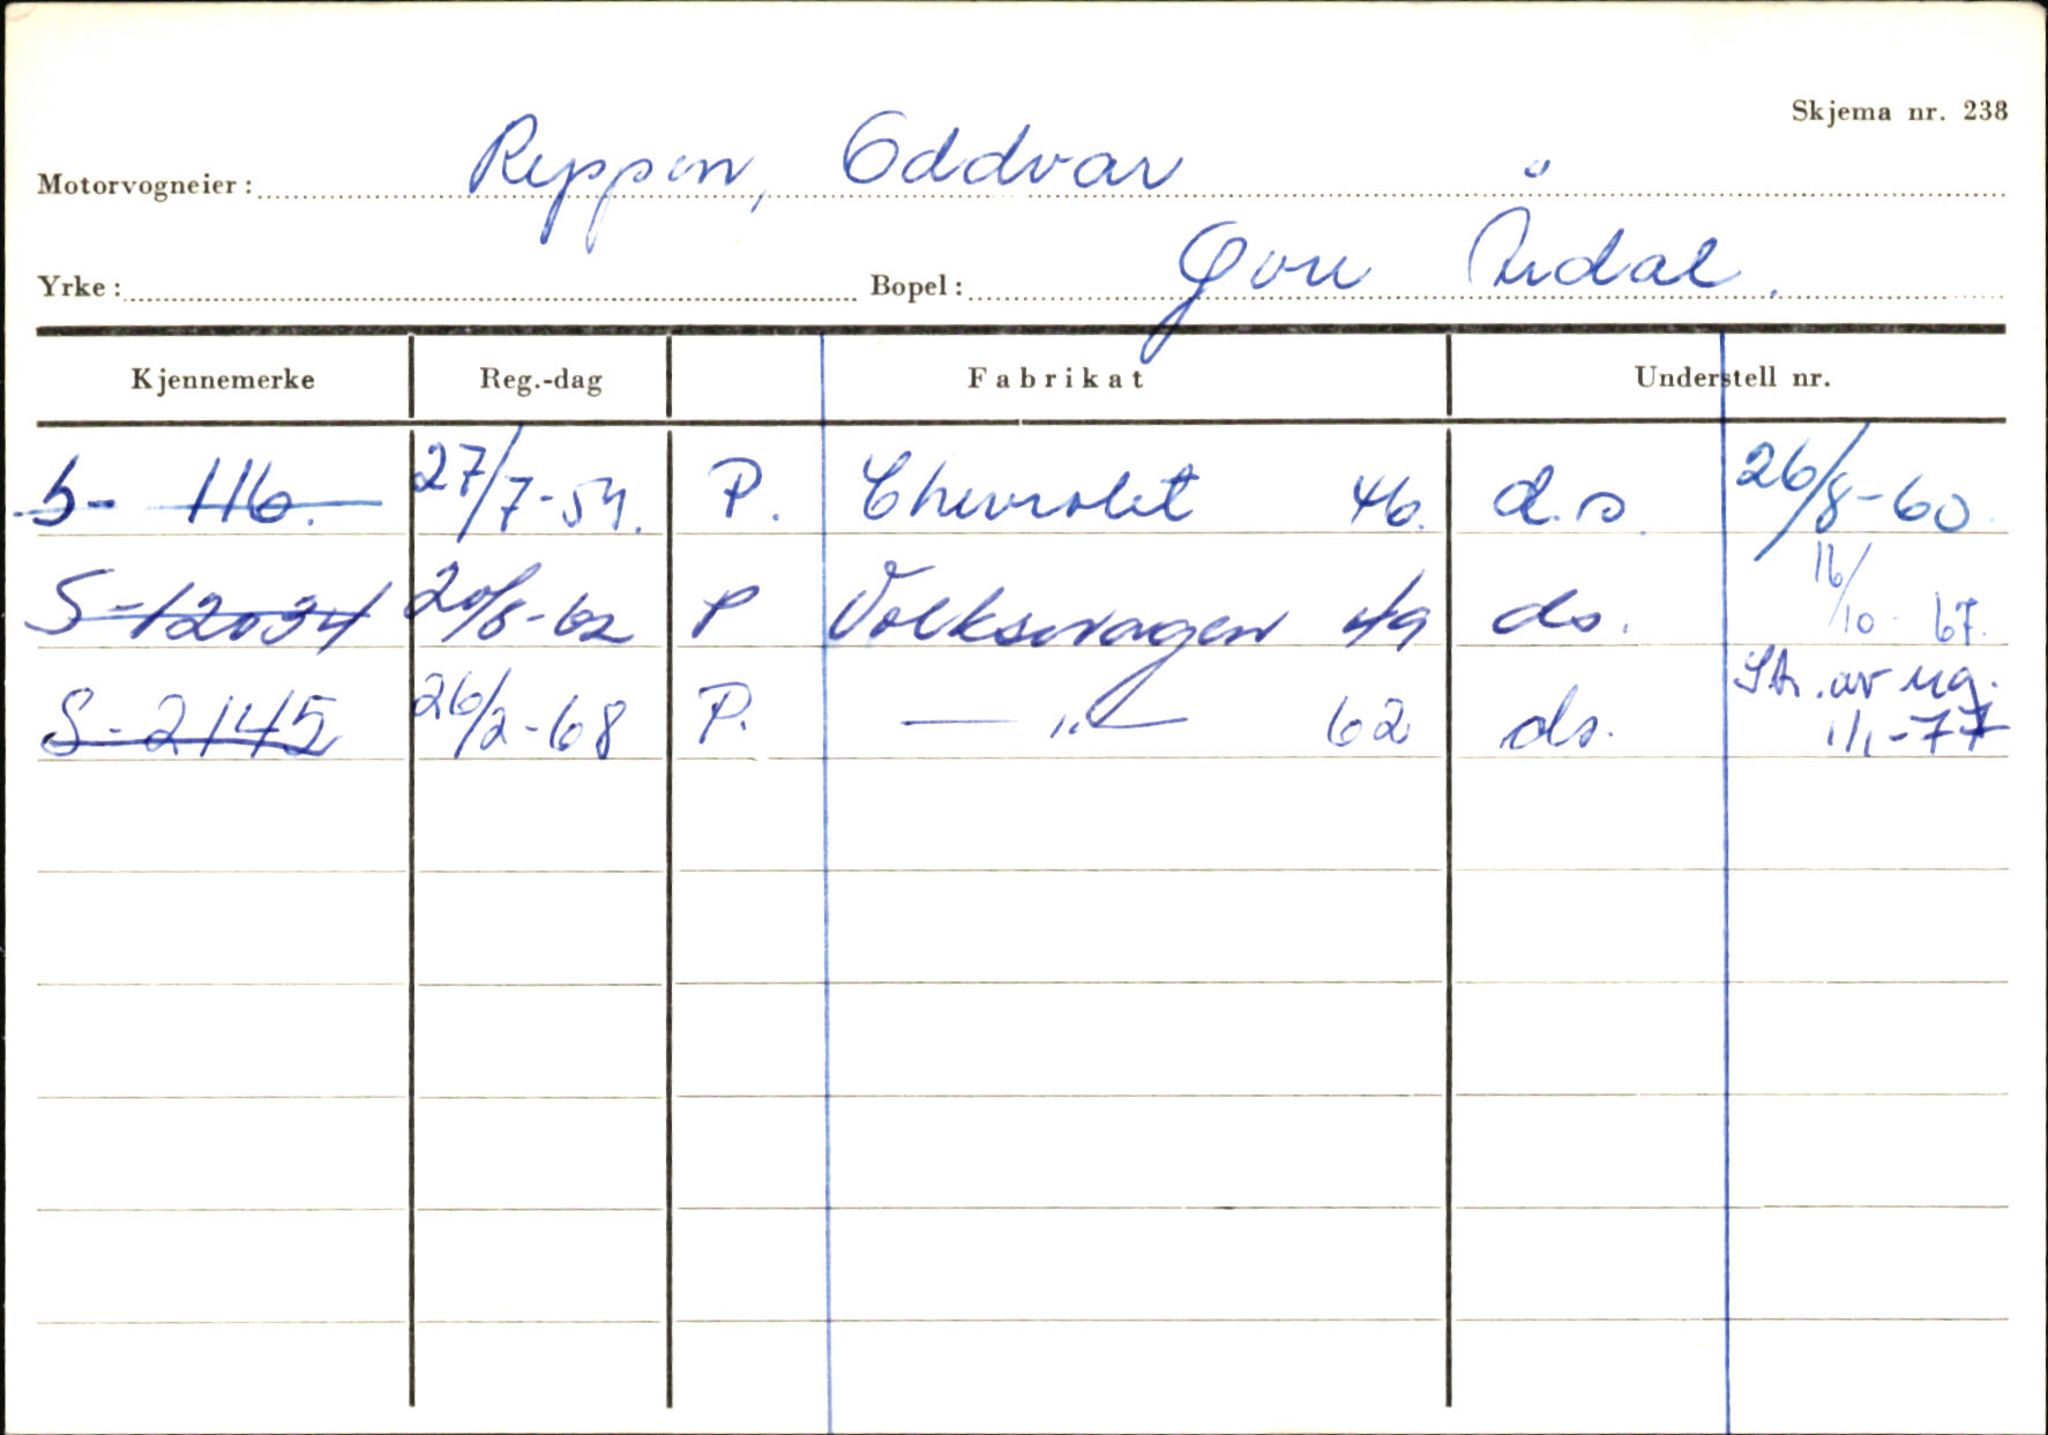 Skjema nr. 238
Motorvogneier: Reppen, Oddvar
Yrke: Bopel: Øvre Årdal.
Kjennemerke Reg.-dag Fabrikat Understell nr.
S- 116. 27/7-54. P. Chevrolet 46. d.s. 26/8-60
S-12034 20/8-62 P Volkswagen 49 ds. 16/10-67.
S-2145 26/2-68 P. —"— 62 ds. Str. av reg. 1/1-77